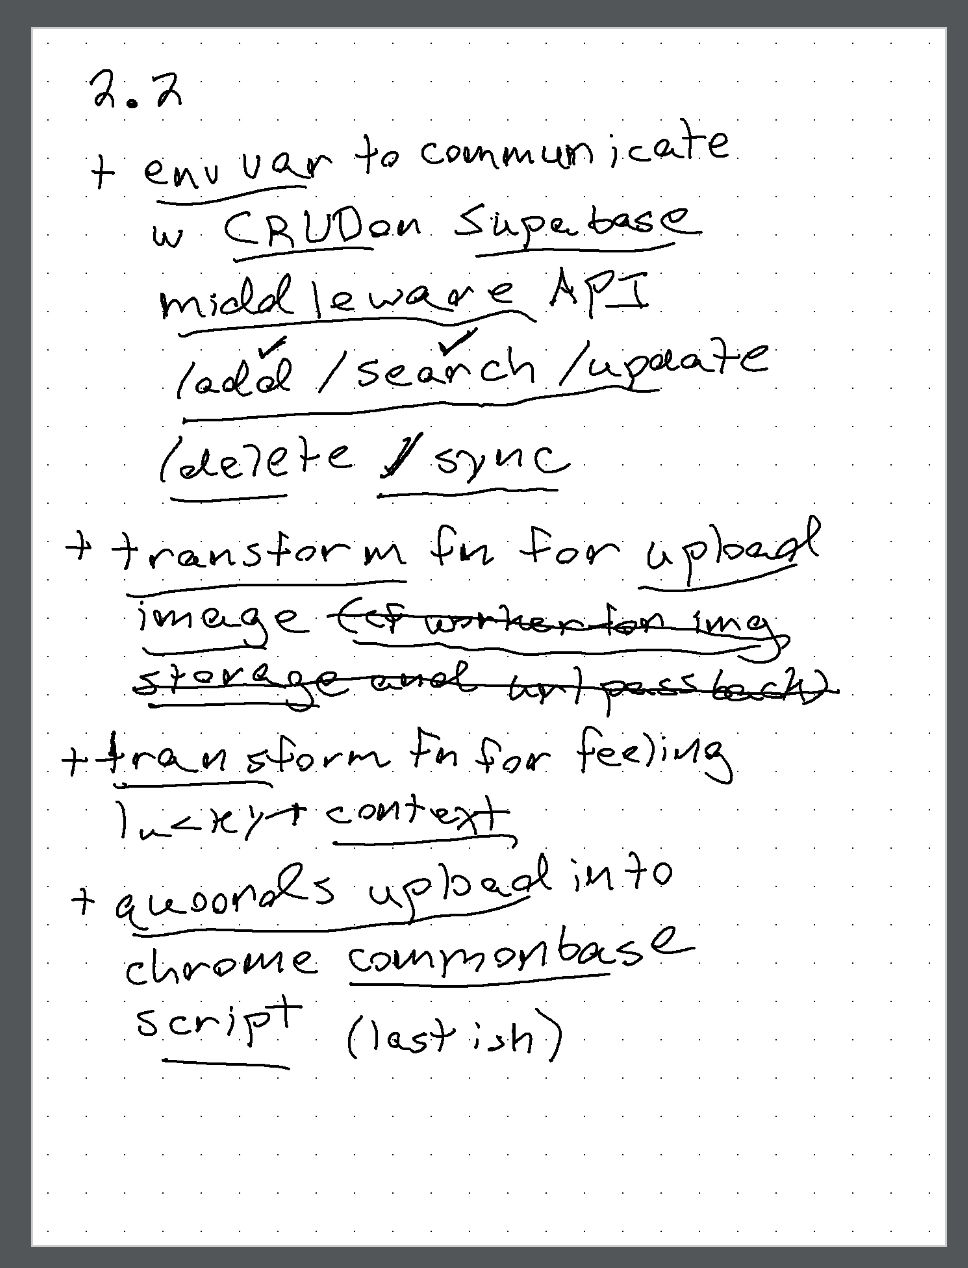 2.2
+ env var to communicate
w CRUD on Supabase
middleware API
/add /search /update
/delete /sync
+ transform fn for upload
image (cf worker for img
storage and url pass back)
+ transform fn for feeling
context
+ quoordls upload into
chrome commonbase
script (last ish)